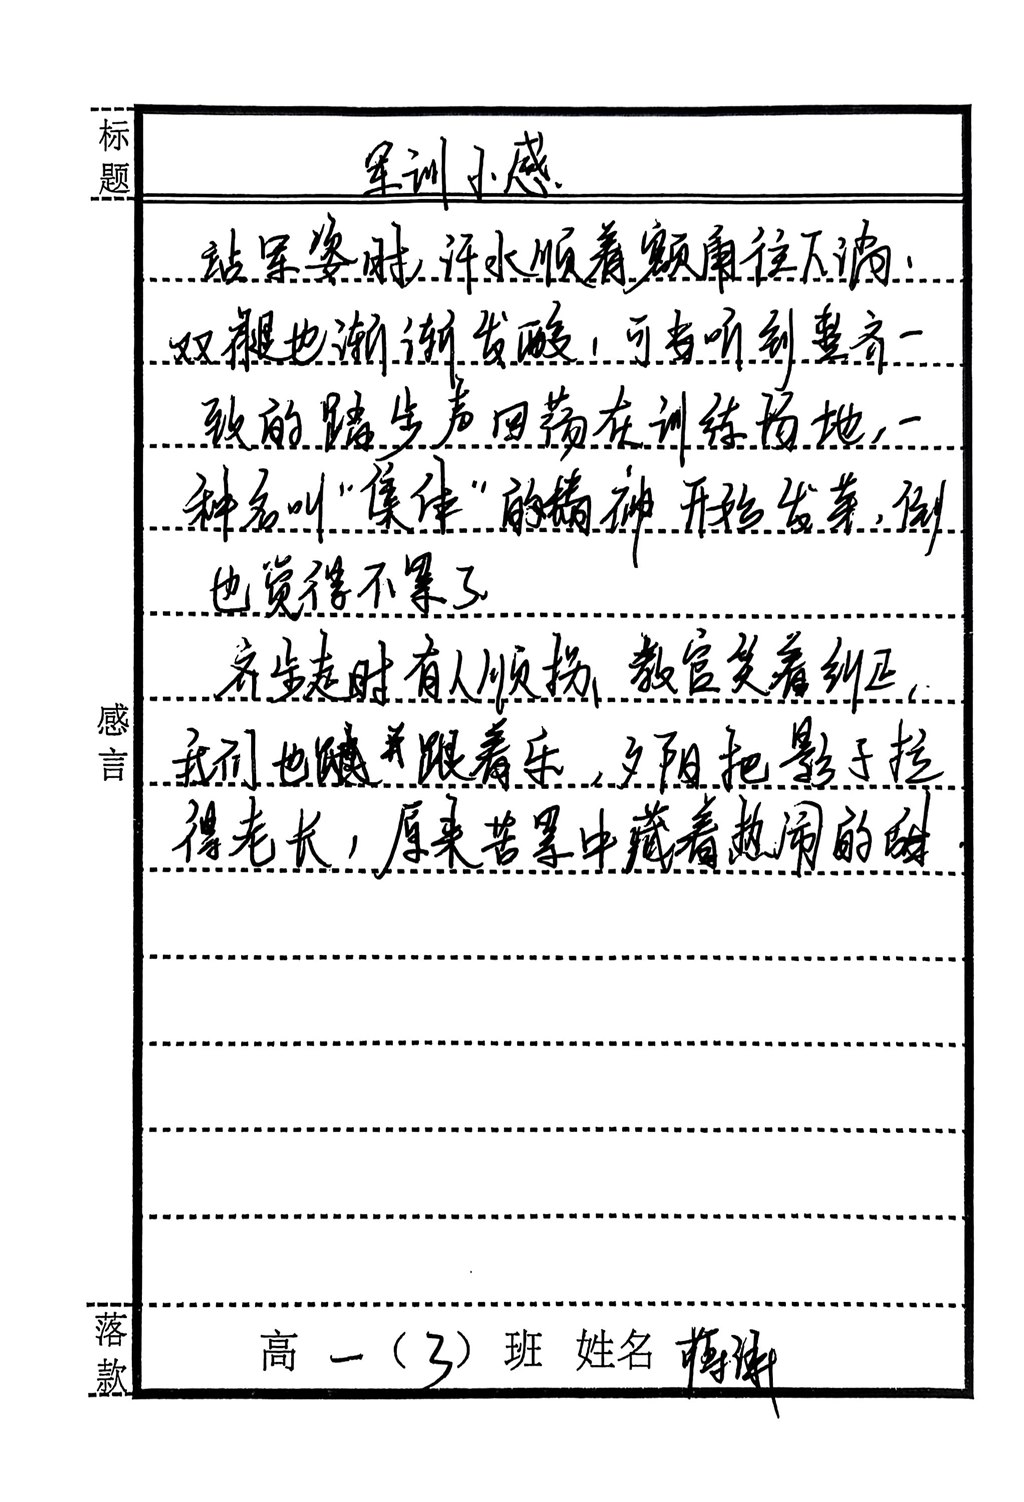 标题
军训小感.
站军姿时,汗水顺着额角往下淌,
双腿也渐渐发酸,可当听到整齐一
致的踏步声回荡在训练场地,一
种名叫“集体”的精神开始发芽,倒
也觉得不累了
齐步走时有人顺拐、教官笑着纠正,
我们也跟着乐,夕阳把影子拉
得老长,原来苦累中藏着热闹的甜.
感言
落款
高一(3)班 姓名 蒋